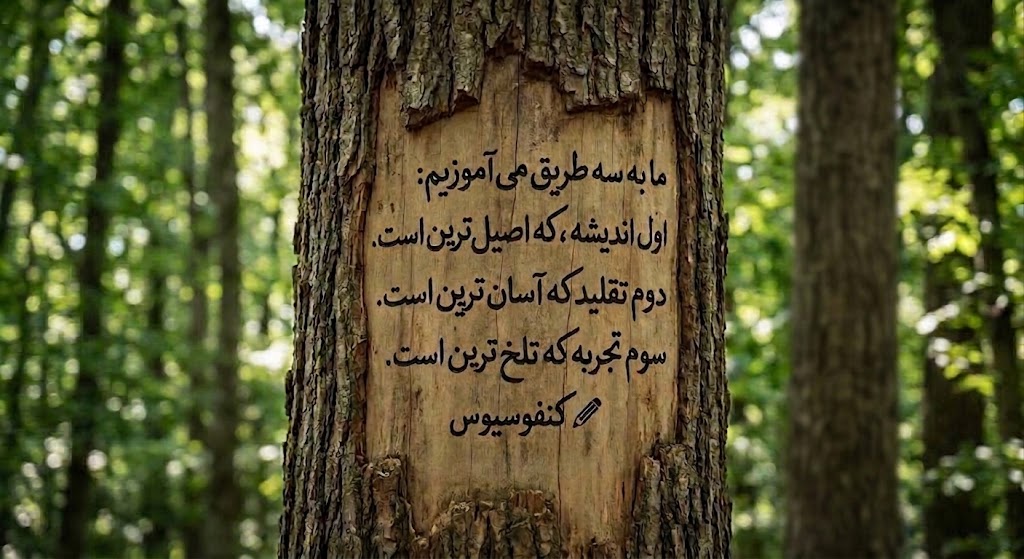 ما به سه طریق می آموزیم:
اول اندیشه، که اصیل ترین است.
دوم تقلید که آسان ترین است.
سوم تجربه که تلخ ترین است.
✏ کنفوسیوس